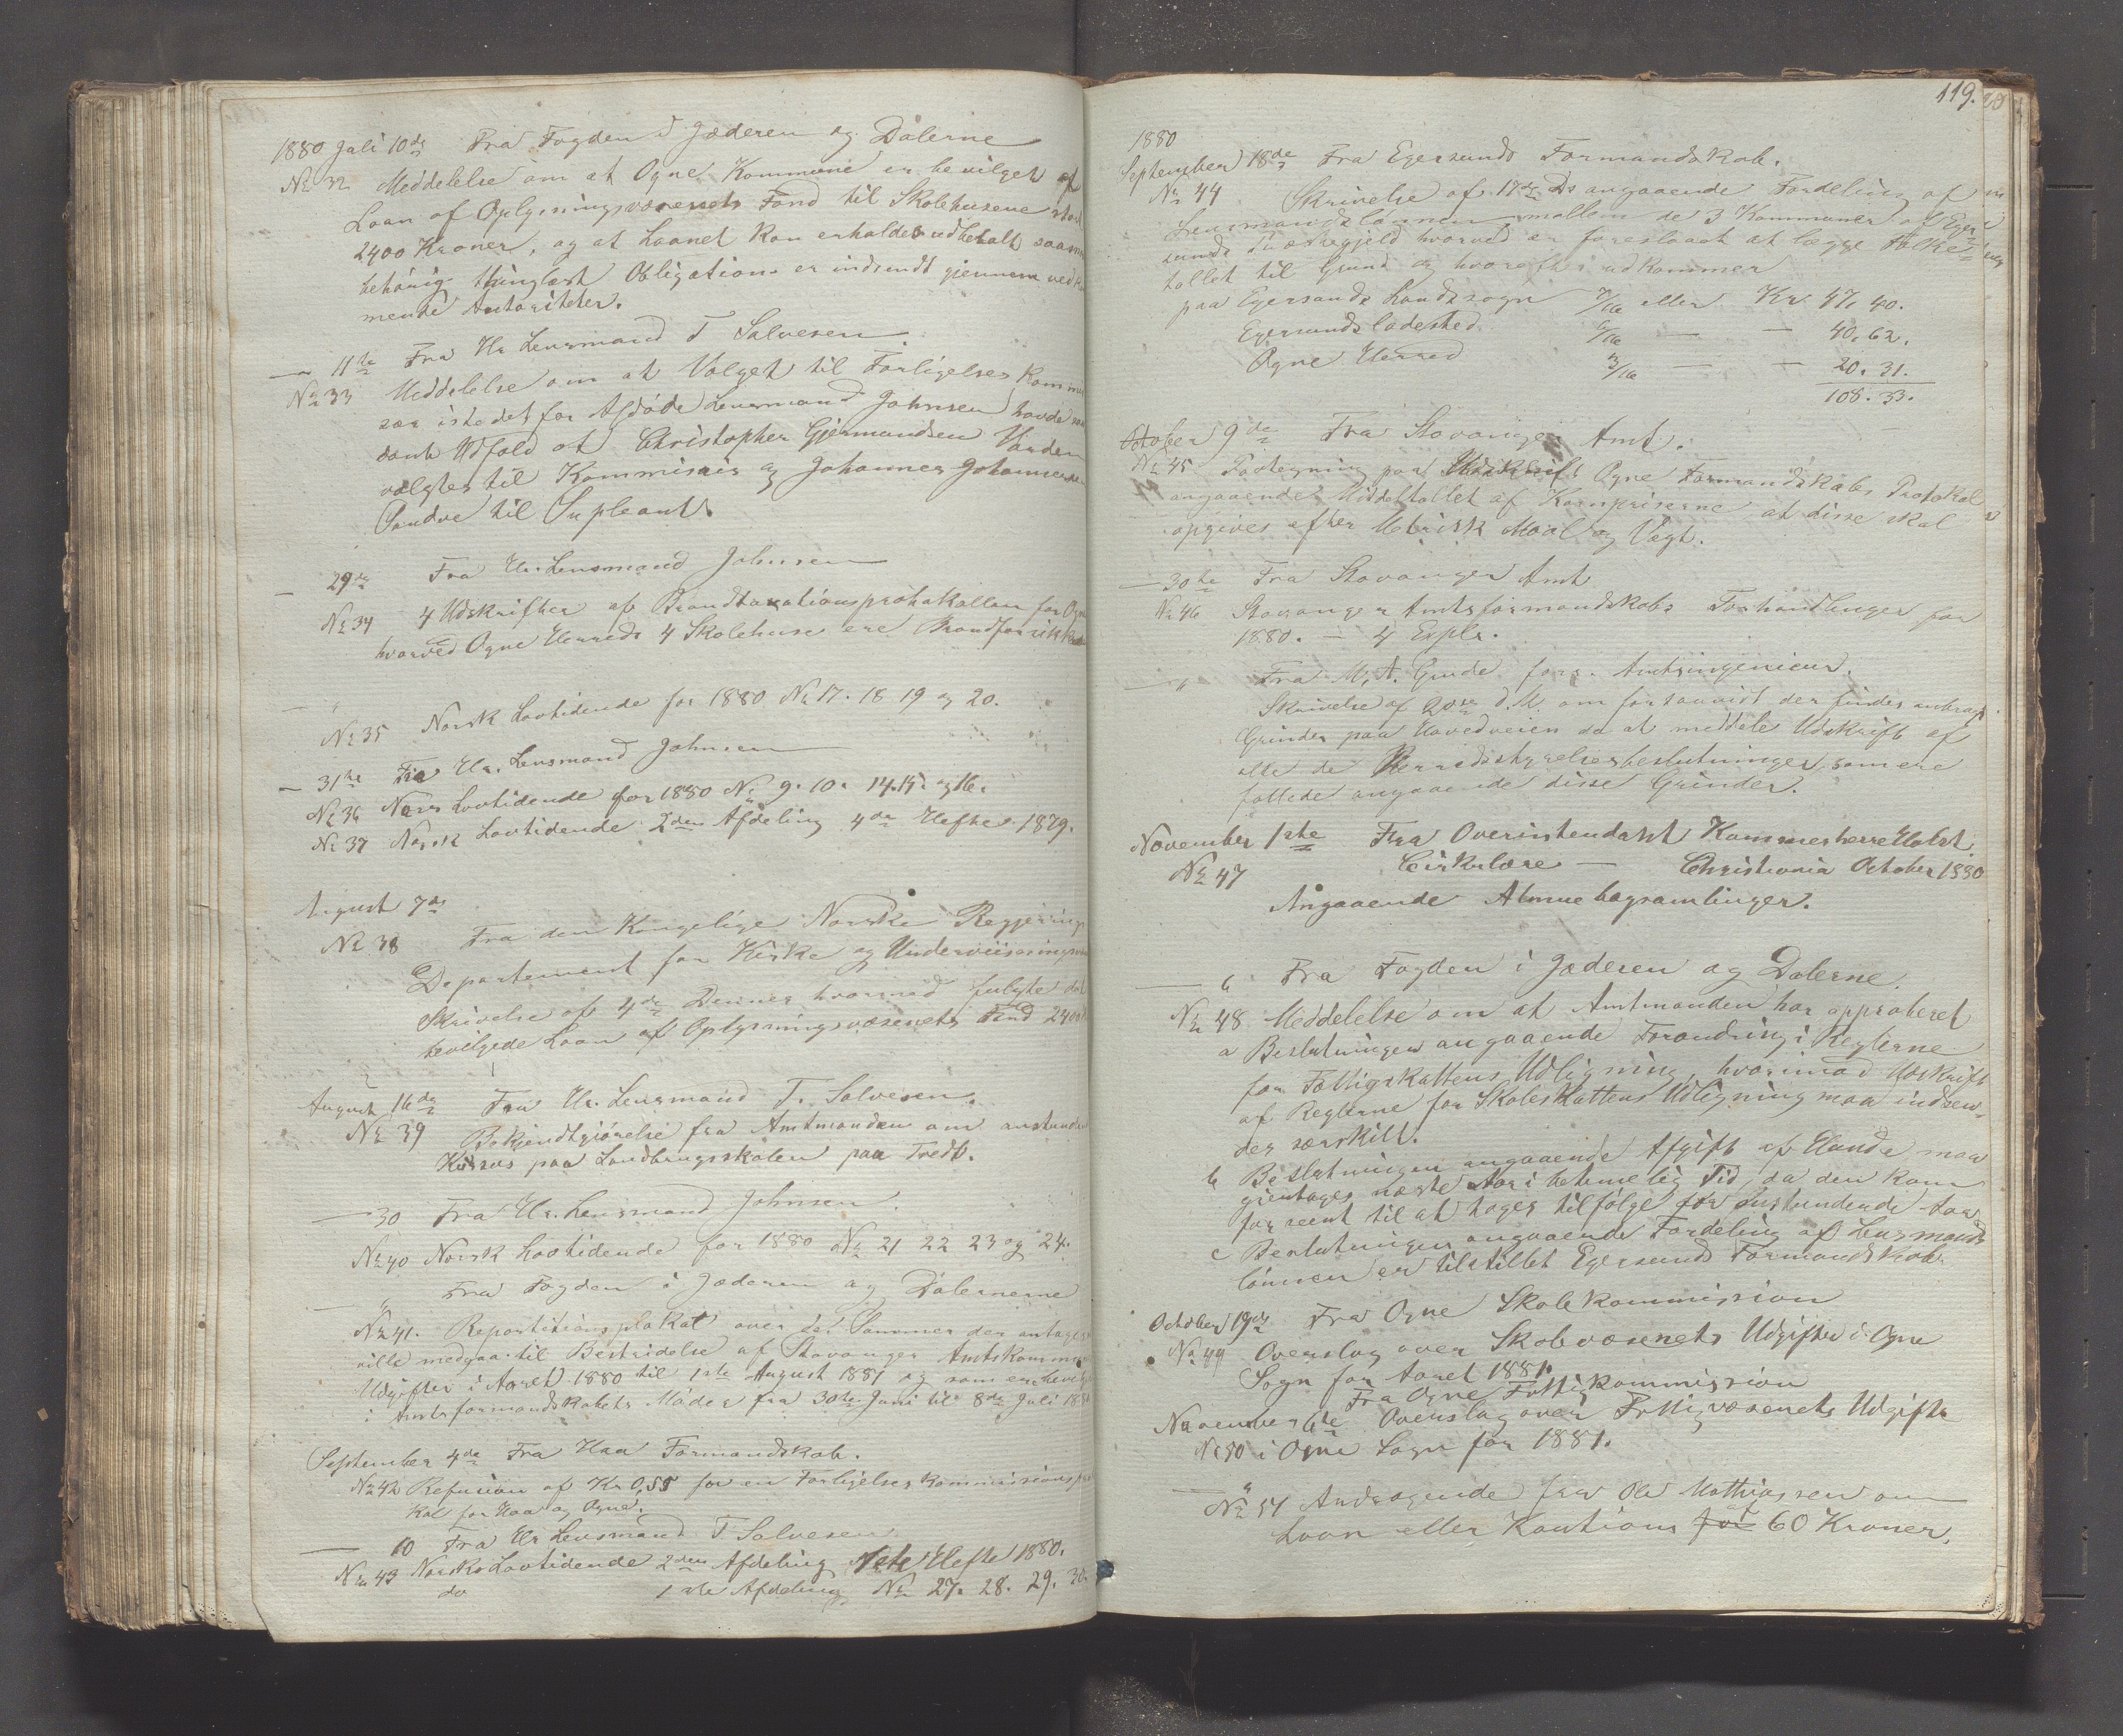 1880 Juli 10de Fra Fogden i Jæderen og Dalerne
No 32 Meddelelse om at Ogne Kommune er bevilget et
Laan af Oplysningsvæsenets Fond til Skolehusene stort
2400 Kroner, og at Laanet kan erholdes udbetalt saasnart
behørig thinglæst Obligation er indsendt gjennem vedkom
mende Autoriteter.
— 11te Fra Hr Lensmand T Salvesen
No 33 Meddelelse om at Valget til Forligelseskommis
sær istedetfor Afdøde Lensmand Johnsen havde saa
dant Udfald at Christopher Gjermundsen Varden
valgtes til Kommisair og Johannes Johannessen
Sandve til Supleant.
— 29de Fra Hr. Lensmand Johnsen
No 34 4 Udskrifter af Brandtaxationsprotokollen for Ogne
hvorved Ogne Herreds 4 Skolehuse ere Brandforsikkrede
No 35 Norsk Lovtidende for 1880 No 17. 18 19 og 20.
— 31te Fra Hr. Lensmand Johnsen
No 36 Norsk Lovtidende for 1880 No 9. 10. 14. 15. og 16.
No 37 Norsk Lovtidende 2den Afdeling 4de Hefte 1879.
August 7de
No 38 Fra den Kongelige Norske Regjerings
Departement for Kirke og Underviisningsvæ
Skrivelse af 4de Dennes hvormed fulgte det
bevilgede Laan af Oplysningsvæsenets Fond 2400
August 16de Fra Hr. Lensmand T. Salvesen.
No 39 Bekjendtgjørelse fra Amtmanden om anstundende
Kursus paa Landbrugsskolen paa Tredt.
— 30 Fra Hr. Lensmand Johnsen.
No 40 Norsk Lovtidende for 1880 No 21 22 23 og 24.
— " Fra Fogden i Jæderen og Dalernerne
No 41. Repartitionsplakat over de Summer der antages
ville medgaa til Bestridelse af Stavanger Amtskommunes
Udgifter i Aaret 1880 til 1ste August 1881 og som ere bevilget
i Amtsformandskabets Møder fra 30te Juni til 8de Juli 1880
September 4de Fra Haa Formandskab.
No 42 Refusion af Kr 0,55 for en Forligelseskommissionspro
kol for Haa og Ogne.
— 10 Fra Hr Lensmand T Salvesen
No 43 Norsk Lovtidende 2den Afdeling 1ste Hefte 1880.
do 1ste Afdeling No 27. 28. 29. 30.
119.
1880
September 18de Fra Egersunds Formandskab.
No 44 Skrivelse af 17de Ds angaaende Fordeling af
Lensmandslønnen mellem de 3 Kommuner af Eger-
sunds Præstegjeld hvorved er foreslaaet at lægge Folke-
tallet til Grund og hvorefter udkommer
paa Egersunds Landsogn 7/16 eller Kr. 47, 40.
Egersunds ladested 6/16 — — 40, 62.
Ogne Herred 3/16 — — 20. 31.
108. 33.
October 9de Fra Stavanger Amt.
No 45 Paategning paa Udskrift Ogne Formandskabs Protokol
angaaende Middeltallet af Kornpriserne at disse skal
opgives efter Metrisk Maal og Vægt.
— 30te Fra Stavanger Amt
No 46 Stavanger Amtsformandskabs Forhandlinger for
1880. — 4 Explr.
— " Fra M. A. Grude fors. Amtsingenieur.
Skrivelse af 20de d. M. om forsaavidt der findes anbragt
Grinder paa Hovedveien da at meddele Udskrift af
alle de Herredsstyrelsesbeslutninger som ere
fattede angaaende disse Grinder.
November 1ste Fra Overintendant Kammerherre Holst
No 47 Cirkulære — Christiania October 1880
Angaaende Almuebogsamlinger.
— 6 Fra Fogden i Jæderen og Dalerne.
No 48 Meddelelse om at Amtmanden har approberet
a Beslutningen angaaende Forandring i Reglerne
for Fattigskattens Udligning, hvorimod Udskrift
af Reglerne for Skoleskattens Udligning maa indsen-
des særskilt.
b Beslutningen angaaende Afgift af Hunde maa
gjentages næste Aar i betimelig Tid, da den kom
for seent til at tages tilfølge for anstundende Aar
c Beslutningen angaaende Fordeling af Lensmands
lønnen er tilstillet Egersunds Formandskab.
October 19de Fra Ogne Skolekommission
No 49 Overslag over Skolevæsenets Udgifter i Ogne
Sogn for Aaret 1881.
Fra Ogne Fattigkommission
November 6te Overslag over Fattigvæsenets Udgifter
No 50 i Ogne Sogn for 1881.
— "
No 51 Andragende fra Ole Mathiassen om
Laan eller Kaution for 60 Kroner.